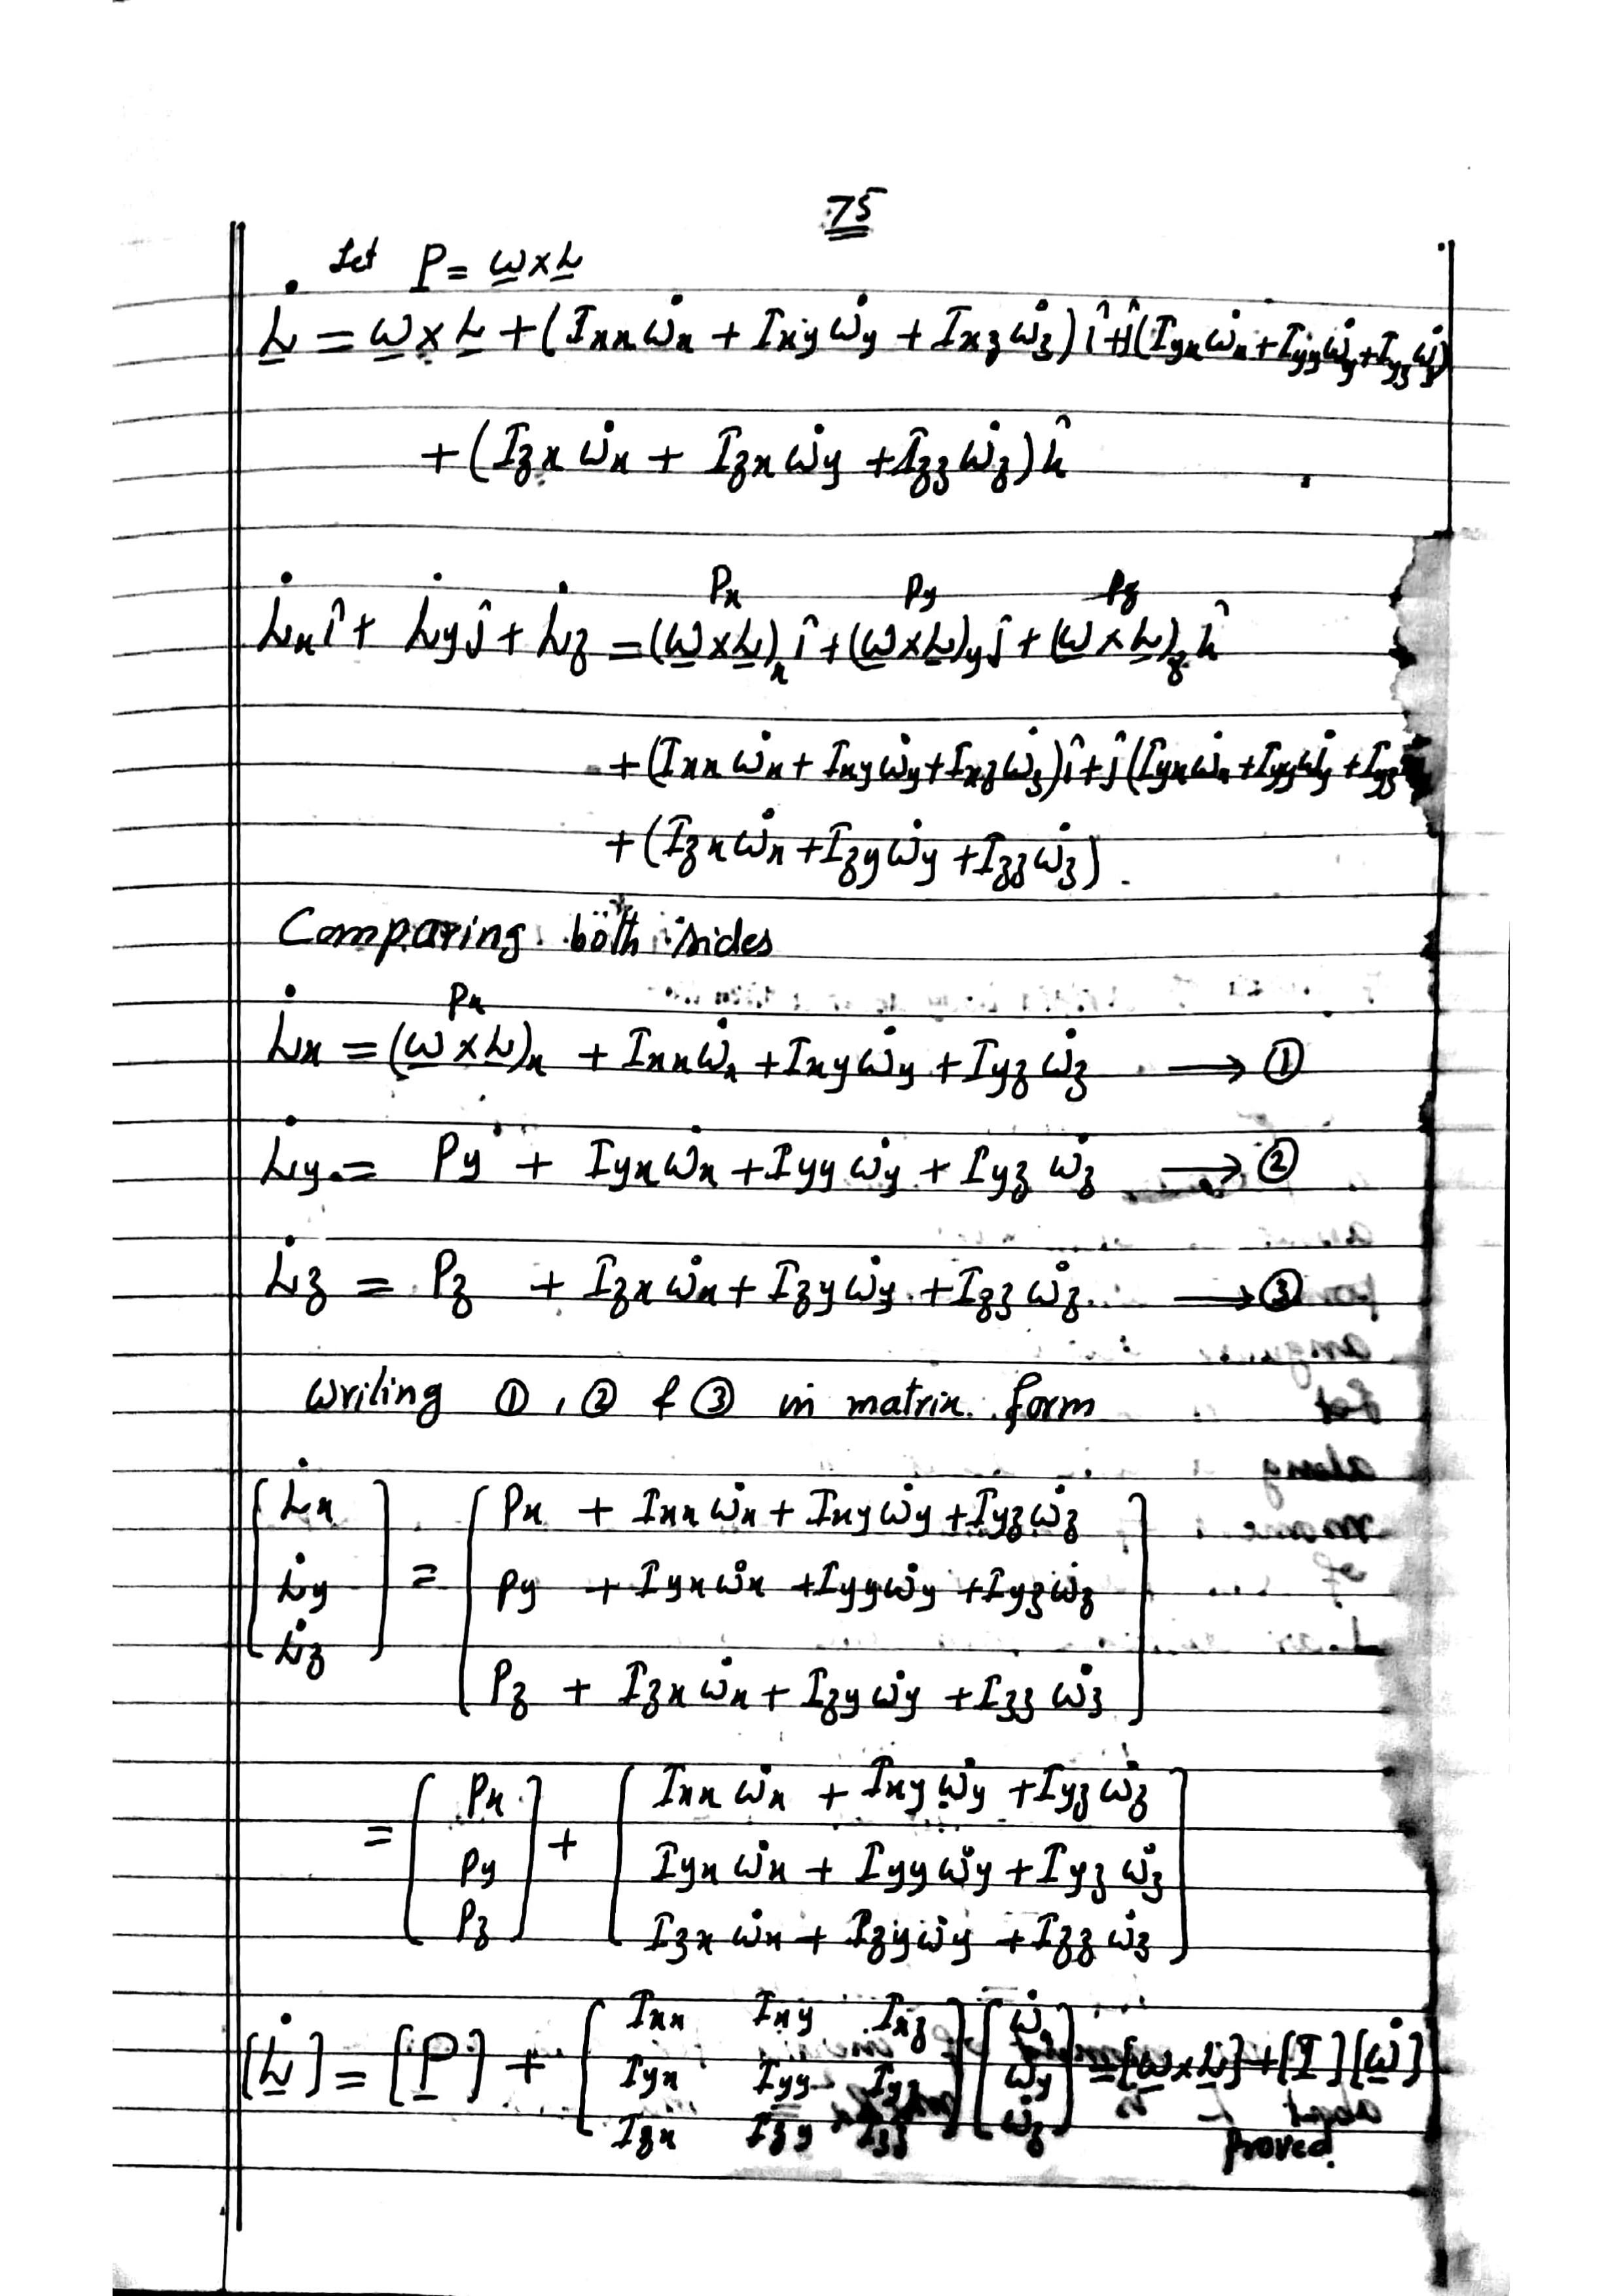 75
Let P = ω × L
L̇ = ω × L + (Ixx ω̇x + Ixy ω̇y + Ixz ω̇z) î + ĵ (Iyx ω̇x + Iyy ω̇y + Iyz ω̇z)
+ (Izx ω̇x + Izx ω̇y + Izz ω̇z) k̂
Px Py Pz
L̇x î + L̇y ĵ + L̇z = (ω × L)x î + (ω × L)y ĵ + (ω × L)z k̂
+ (Ixx ω̇x + Ixy ω̇y + Ixz ω̇z) î + ĵ (Iyx ω̇x + Iyy ω̇y + Iyz
+ (Izx ω̇x + Izy ω̇y + Izz ω̇z).
Comparing both sides
Px
L̇x = (ω × L)x + Ixx ω̇x + Ixy ω̇y + Iyz ω̇z → ①
L̇y = Py + Iyx ω̇x + Iyy ω̇y + Iyz ω̇z → ②
L̇z = Pz + Izx ω̇x + Izy ω̇y + Izz ω̇z → ③
Writing ①, ② & ③ in matrix form
[L̇x] = [Px + Ixx ω̇x + Ixy ω̇y + Iyz ω̇z]
[L̇y] [Py + Iyx ω̇x + Iyy ω̇y + Iyz ω̇z]
[L̇z] [Pz + Izx ω̇x + Izy ω̇y + Izz ω̇z]
= [Px] + [Ixx ω̇x + Ixy ω̇y + Iyz ω̇z]
[Py] [Iyx ω̇x + Iyy ω̇y + Iyz ω̇z]
[Pz] [Izx ω̇x + Izy ω̇y + Izz ω̇z]
[Ixx Ixy Ixz] [ω̇x]
[L̇] = [P] + [Iyx Iyy Iyz] [ω̇y] = [ω × L] + [I] [ω̇]
[Izx Izy Izz] [ω̇z]
Proved.